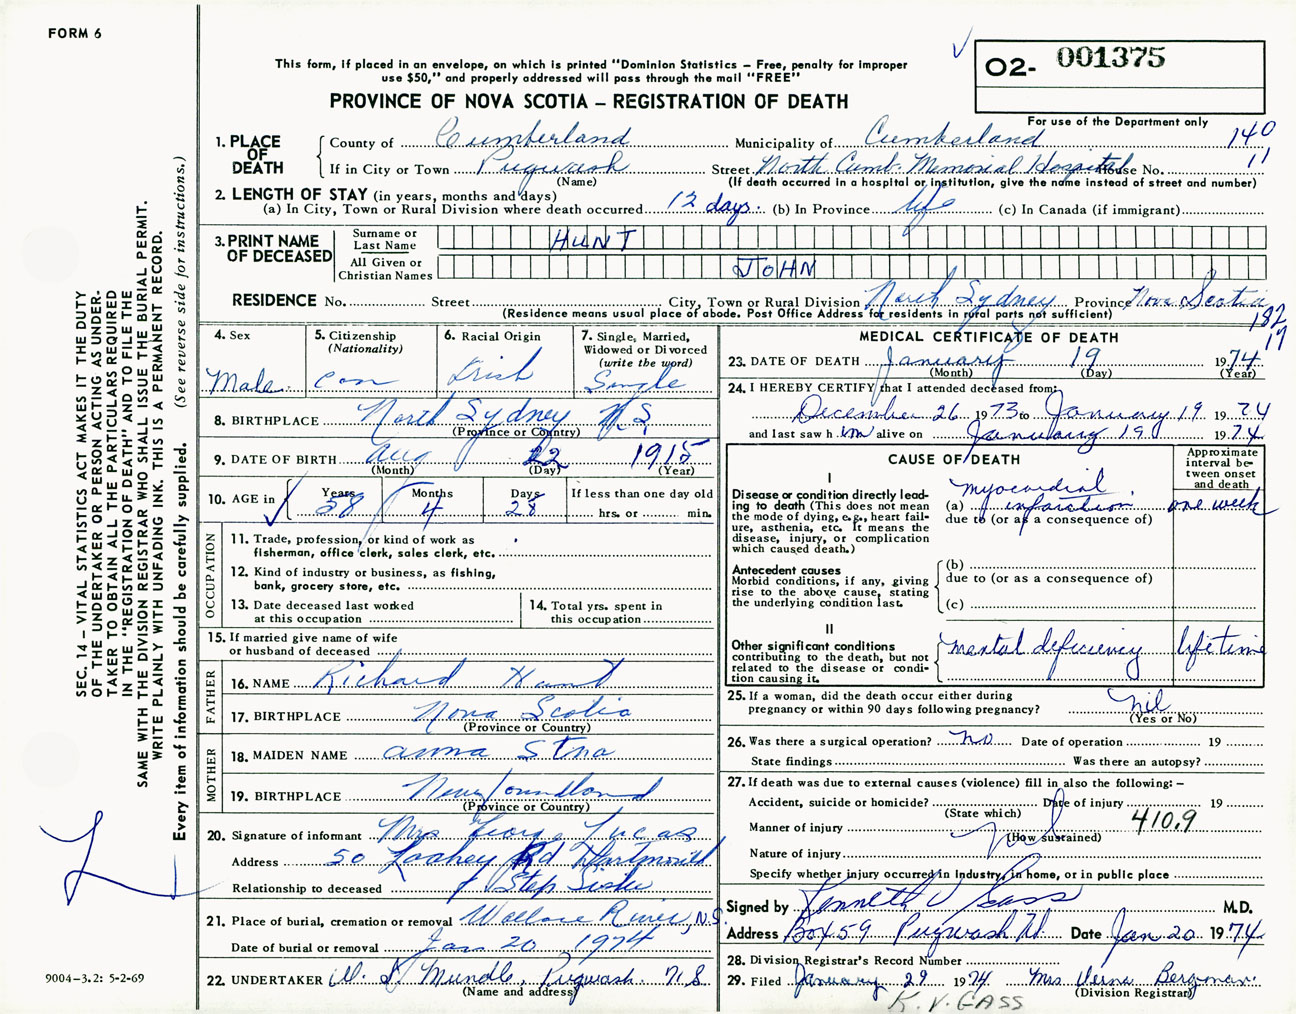 FORM 6
O2- 001375
This form, if placed in an envelope, on which is printed "Dominion Statistics – Free, penalty for improper
use $50," and properly addressed will pass through the mail "FREE"
PROVINCE OF NOVA SCOTIA – REGISTRATION OF DEATH
For use of the Department only
1. PLACE OF DEATH County of Cumberland Municipality of Cumberland 140
If in City or Town Pugwash Street North Cumb. Memorial Hospital House No. 11
(Name) (If death occurred in a hospital or institution, give the name instead of street and number)
2. LENGTH OF STAY (in years, months and days)
(a) In City, Town or Rural Division where death occurred 12 days. (b) In Province life (c) In Canada (if immigrant)
3. PRINT NAME OF DECEASED
Surname or Last Name HUNT
All Given or Christian Names JOHN
RESIDENCE No. Street City, Town or Rural Division North Sydney Province Nova Scotia
(Residence means usual place of abode. Post Office Address for residents in rural parts not sufficient)
182
17
4. Sex Male
5. Citizenship (Nationality) Can
6. Racial Origin Irish
7. Single, Married, Widowed or Divorced (write the word) Single
8. BIRTHPLACE North Sydney N.S.
(Province or Country)
9. DATE OF BIRTH Aug 22 1915
(Month) (Day) (Year)
10. AGE in Years 58 Months 4 Days 28 If less than one day old
hrs. or min.
OCCUPATION
11. Trade, profession, or kind of work as
fisherman, office clerk, sales clerk, etc.
12. Kind of industry or business, as fishing,
bank, grocery store, etc.
13. Date deceased last worked
at this occupation
14. Total yrs. spent in
this occupation
15. If married give name of wife
or husband of deceased
FATHER
16. NAME Richard Hunt
17. BIRTHPLACE Nova Scotia
(Province or Country)
MOTHER
18. MAIDEN NAME Anna
19. BIRTHPLACE Newfoundland
(Province or Country)
20. Signature of informant Mrs George Lucas
Address 50 Rd Dartmouth
Relationship to deceased Step Sister
21. Place of burial, cremation or removal Wallace River, N.S.
Date of burial or removal Jan 20 1974
22. UNDERTAKER Mundle, Pugwash N.S.
(Name and address)
MEDICAL CERTIFICATE OF DEATH
23. DATE OF DEATH January 19 1974
(Month) (Day) (Year)
24. I HEREBY CERTIFY that I attended deceased from:
December 26 1973 to January 19 1974
and last saw him alive on January 19 1974
CAUSE OF DEATH
Approximate interval between onset and death
I
Disease or condition directly lead-
ing to death (This does not mean
the mode of dying, e.g., heart fail-
ure, asthenia, etc. It means the
disease, injury, or complication
which caused death.)
(a) myocardial infarction one week
due to (or as a consequence of)
Antecedent causes
Morbid conditions, if any, giving
rise to the above cause, stating
the underlying condition last.
(b)
due to (or as a consequence of)
(c)
II
Other significant conditions
contributing to the death, but not
related to the disease or condi-
tion causing it.
mental deficiency lifetime
25. If a woman, did the death occur either during
pregnancy or within 90 days following pregnancy? nil
(Yes or No)
26. Was there a surgical operation? no Date of operation 19
State findings Was there an autopsy?
27. If death was due to external causes (violence) fill in also the following: –
Accident, suicide or homicide? Date of injury 19
(State which)
Manner of injury nil 410.9
(How sustained)
Nature of injury
Specify whether injury occurred in industry, in home, or in public place
Signed by Kenneth V Gass M.D.
Address Box 59 Pugwash NS Date Jan 20 1974
28. Division Registrar's Record Number
29. Filed January 29 1974 Mrs Verne Bergman
(Division Registrar)
K. V. GASS
SEC. 14 – VITAL STATISTICS ACT MAKES IT THE DUTY
OF THE UNDERTAKER OR PERSON ACTING AS UNDER-
TAKER TO OBTAIN ALL THE PARTICULARS REQUIRED
IN THE "REGISTRATION OF DEATH" AND TO FILE THE
SAME WITH THE DIVISION REGISTRAR WHO SHALL ISSUE THE BURIAL PERMIT.
WRITE PLAINLY WITH UNFADING INK. THIS IS A PERMANENT RECORD.
Every item of information should be carefully supplied. (See reverse side for instructions.)
9004-3.2: 5-2-69